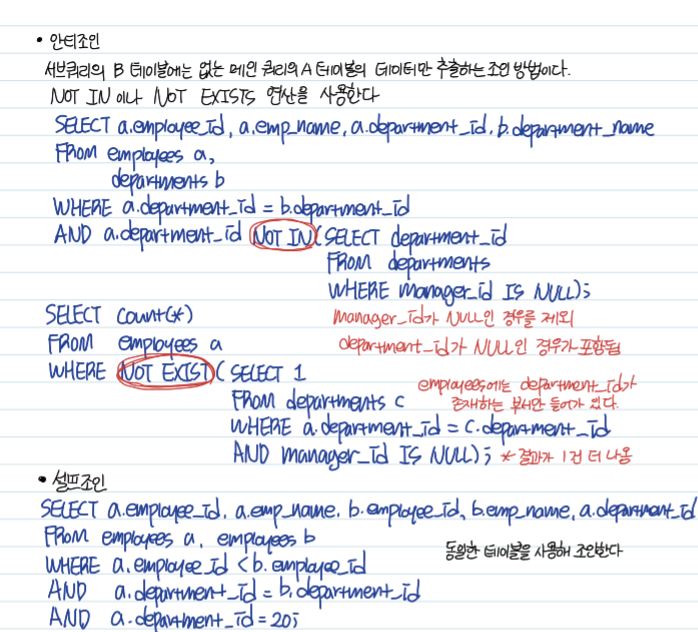 • 안티조인
서브쿼리의 B 테이블에는 없는 메인 쿼리의 A 테이블의 데이터만 추출하는 조인 방법이다.
NOT IN 이나 NOT EXISTS 연산을 사용한다
SELECT a.employee_id, a.emp_name, a.department_id, b.department_name
FROM employees a,
departments b
WHERE a.department_id = b.department_id
AND a.department_id NOT IN (SELECT department_id
FROM departments
WHERE manager_id IS NULL);
manager_id가 NULL인 경우를 제외
SELECT count(*)
FROM employees a
WHERE NOT EXIST ( SELECT 1
FROM departments c
WHERE a.department_id = c.department_id
AND manager_id IS NULL);
department_id가 NULL인 경우가 포함됨
employees에는 department_id가
존재하는 부서만 들어가 있다.
* 결과가 1건 더 나옴
• 셀프조인
SELECT a.employee_id, a.emp_name, b.employee_id, b.emp_name, a.department_id
FROM employees a, employees b
WHERE a.employee_id < b.employee_id
AND a.department_id = b.department_id
AND a.department_id = 20;
동일한 테이블을 사용해 조인한다